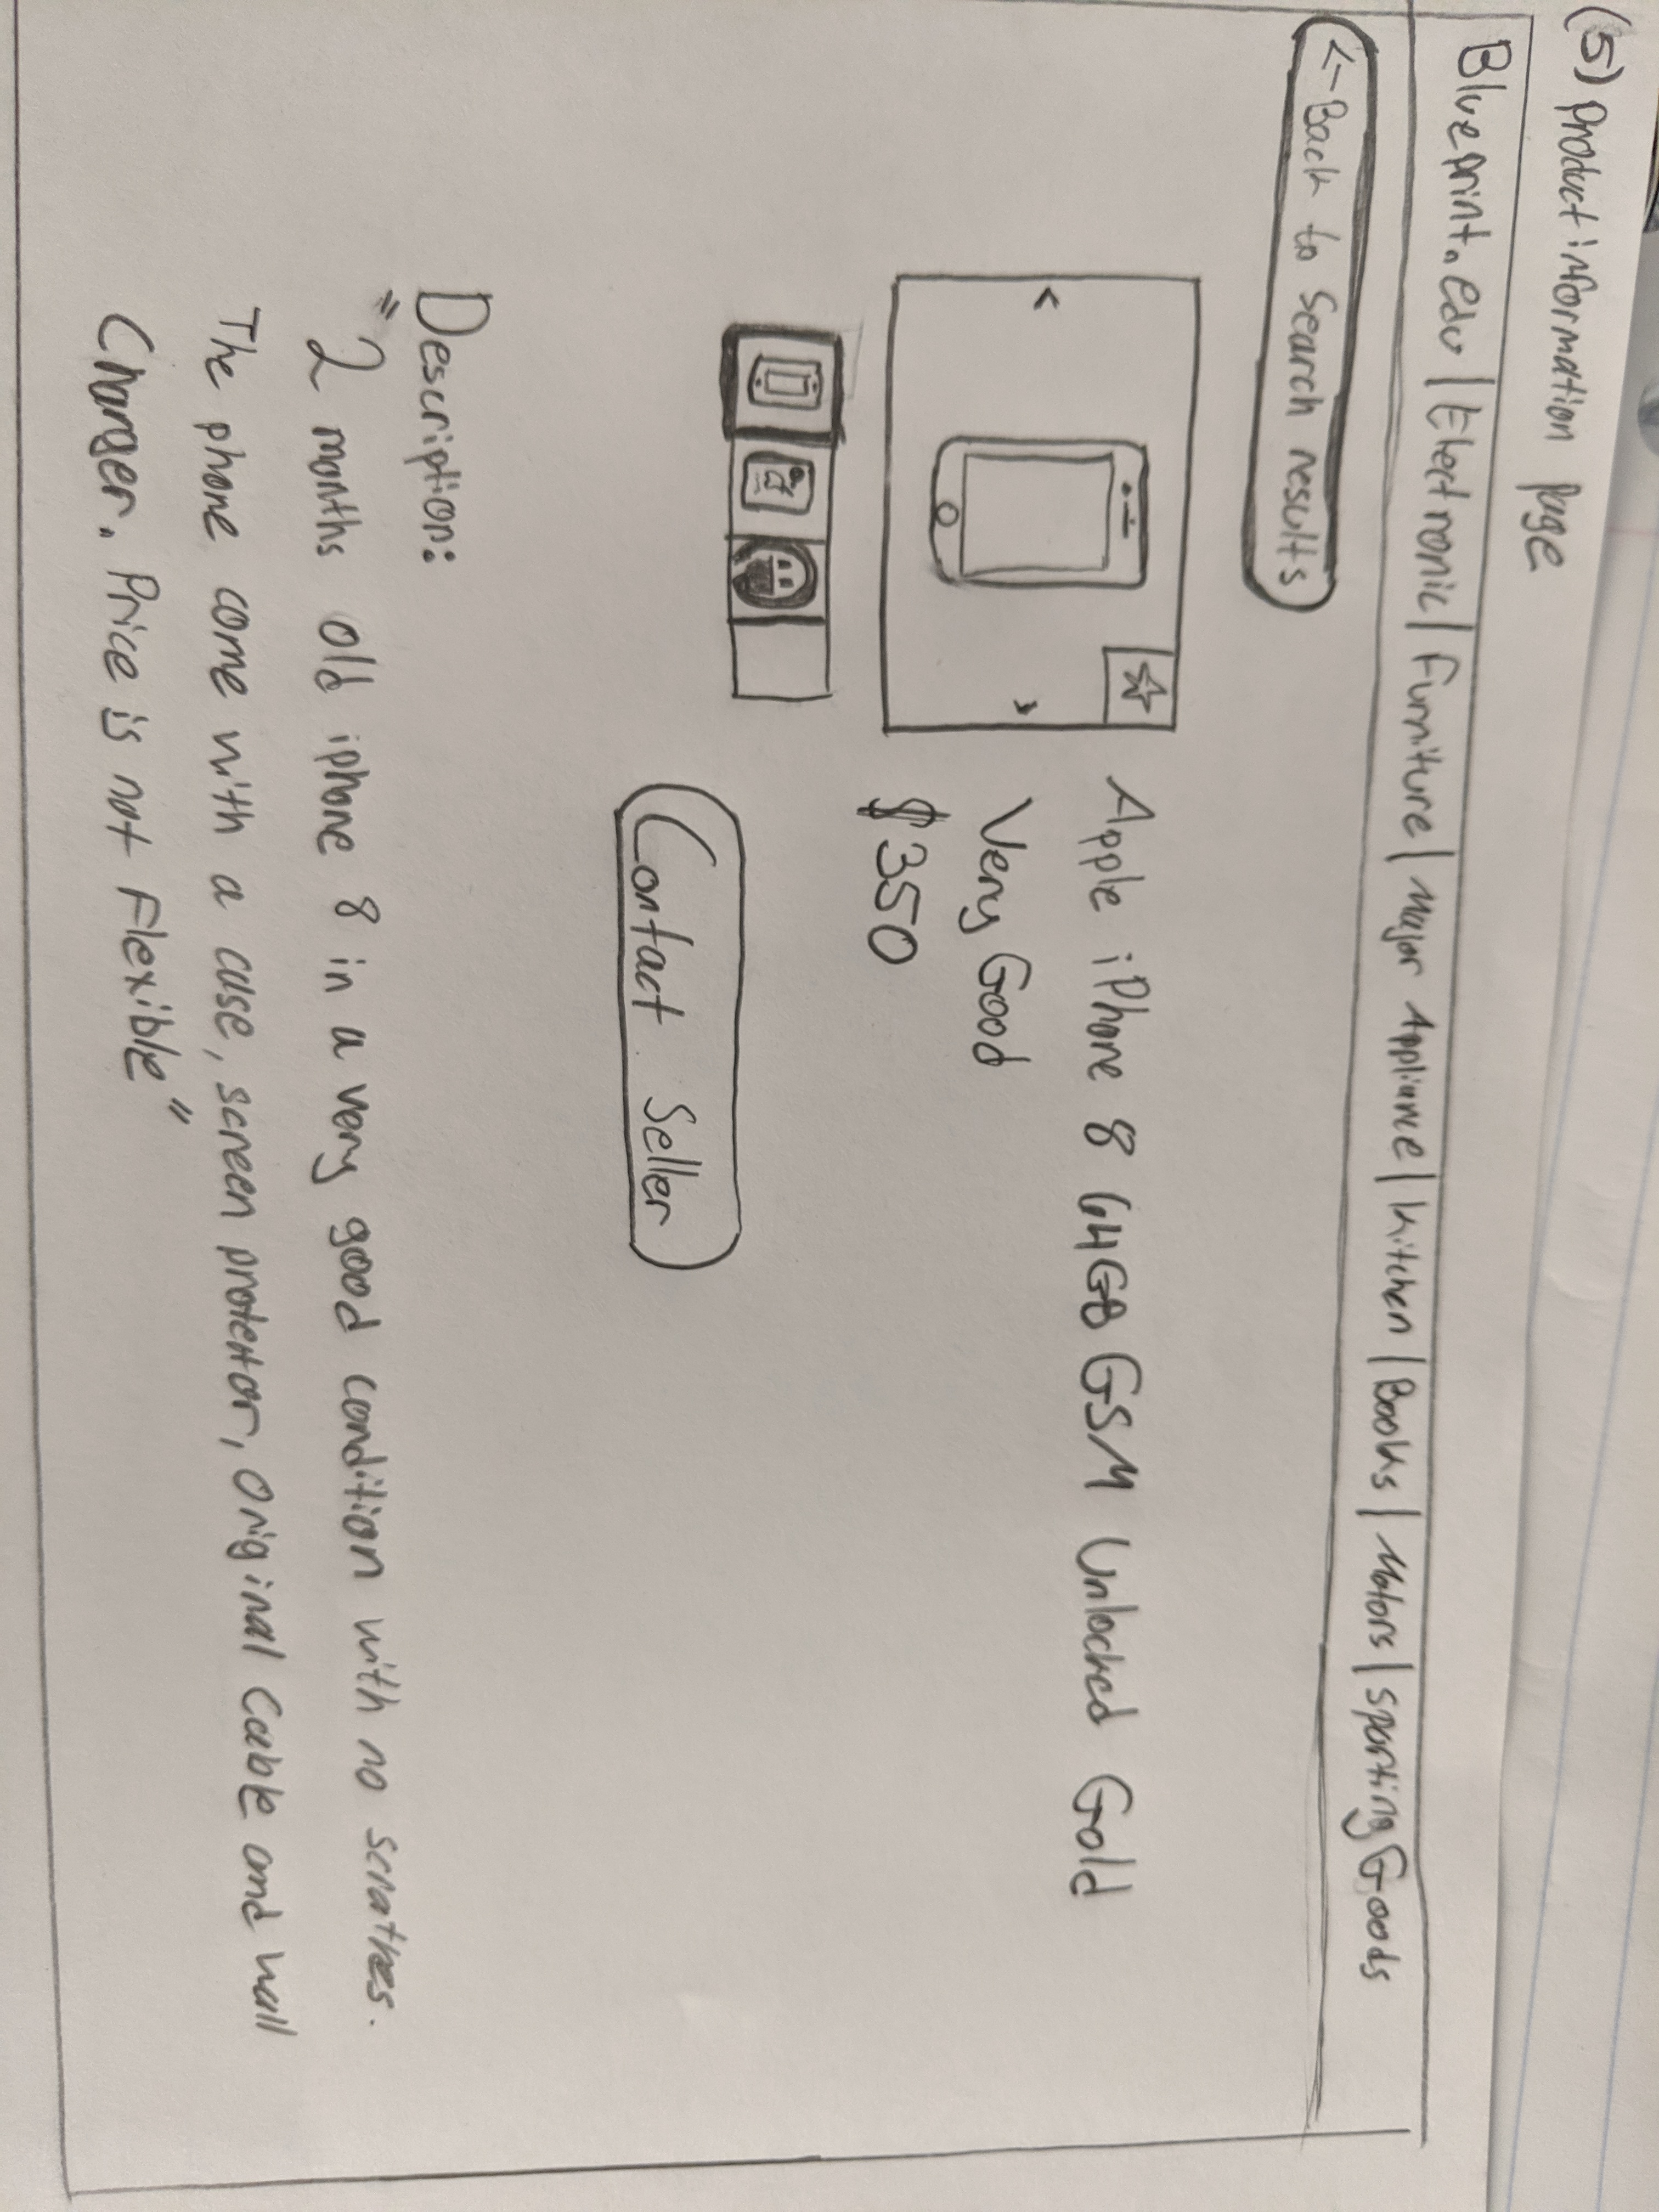 (5) Product information page
Blueprint.edu | Electronic | Furniture | Major Appliance | Kitchen | Books | Motors | Sporting Goods
<- Back to Search results
Apple iPhone 8 64GB GSM Unlocked Gold
< >
Very Good
$350
Contact Seller
Description:
"2 months old iphone 8 in a very good condition with no scrathes.
The phone come with a case, screen protector, Original Cable and wall
Charger. Price is not Flexible"